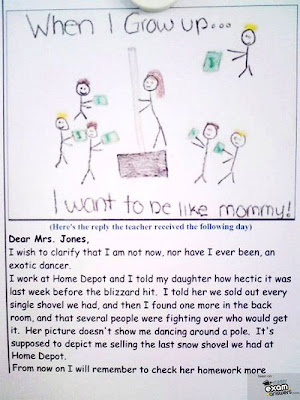 When I Grow up...
I want to be like mommy!
(Here's the reply the teacher received the following day)
Dear Mrs. Jones,
I wish to clarify that I am not now, nor have I ever been, an
exotic dancer.
I work at Home Depot and I told my daughter how hectic it was
last week before the blizzard hit. I told her we sold out every
single shovel we had, and then I found one more in the back
room, and that several people were fighting over who would get
it. Her picture doesn't show me dancing around a pole. It's
supposed to depict me selling the last snow shovel we had at
Home Depot.
From now on I will remember to check her homework more
exam
answers